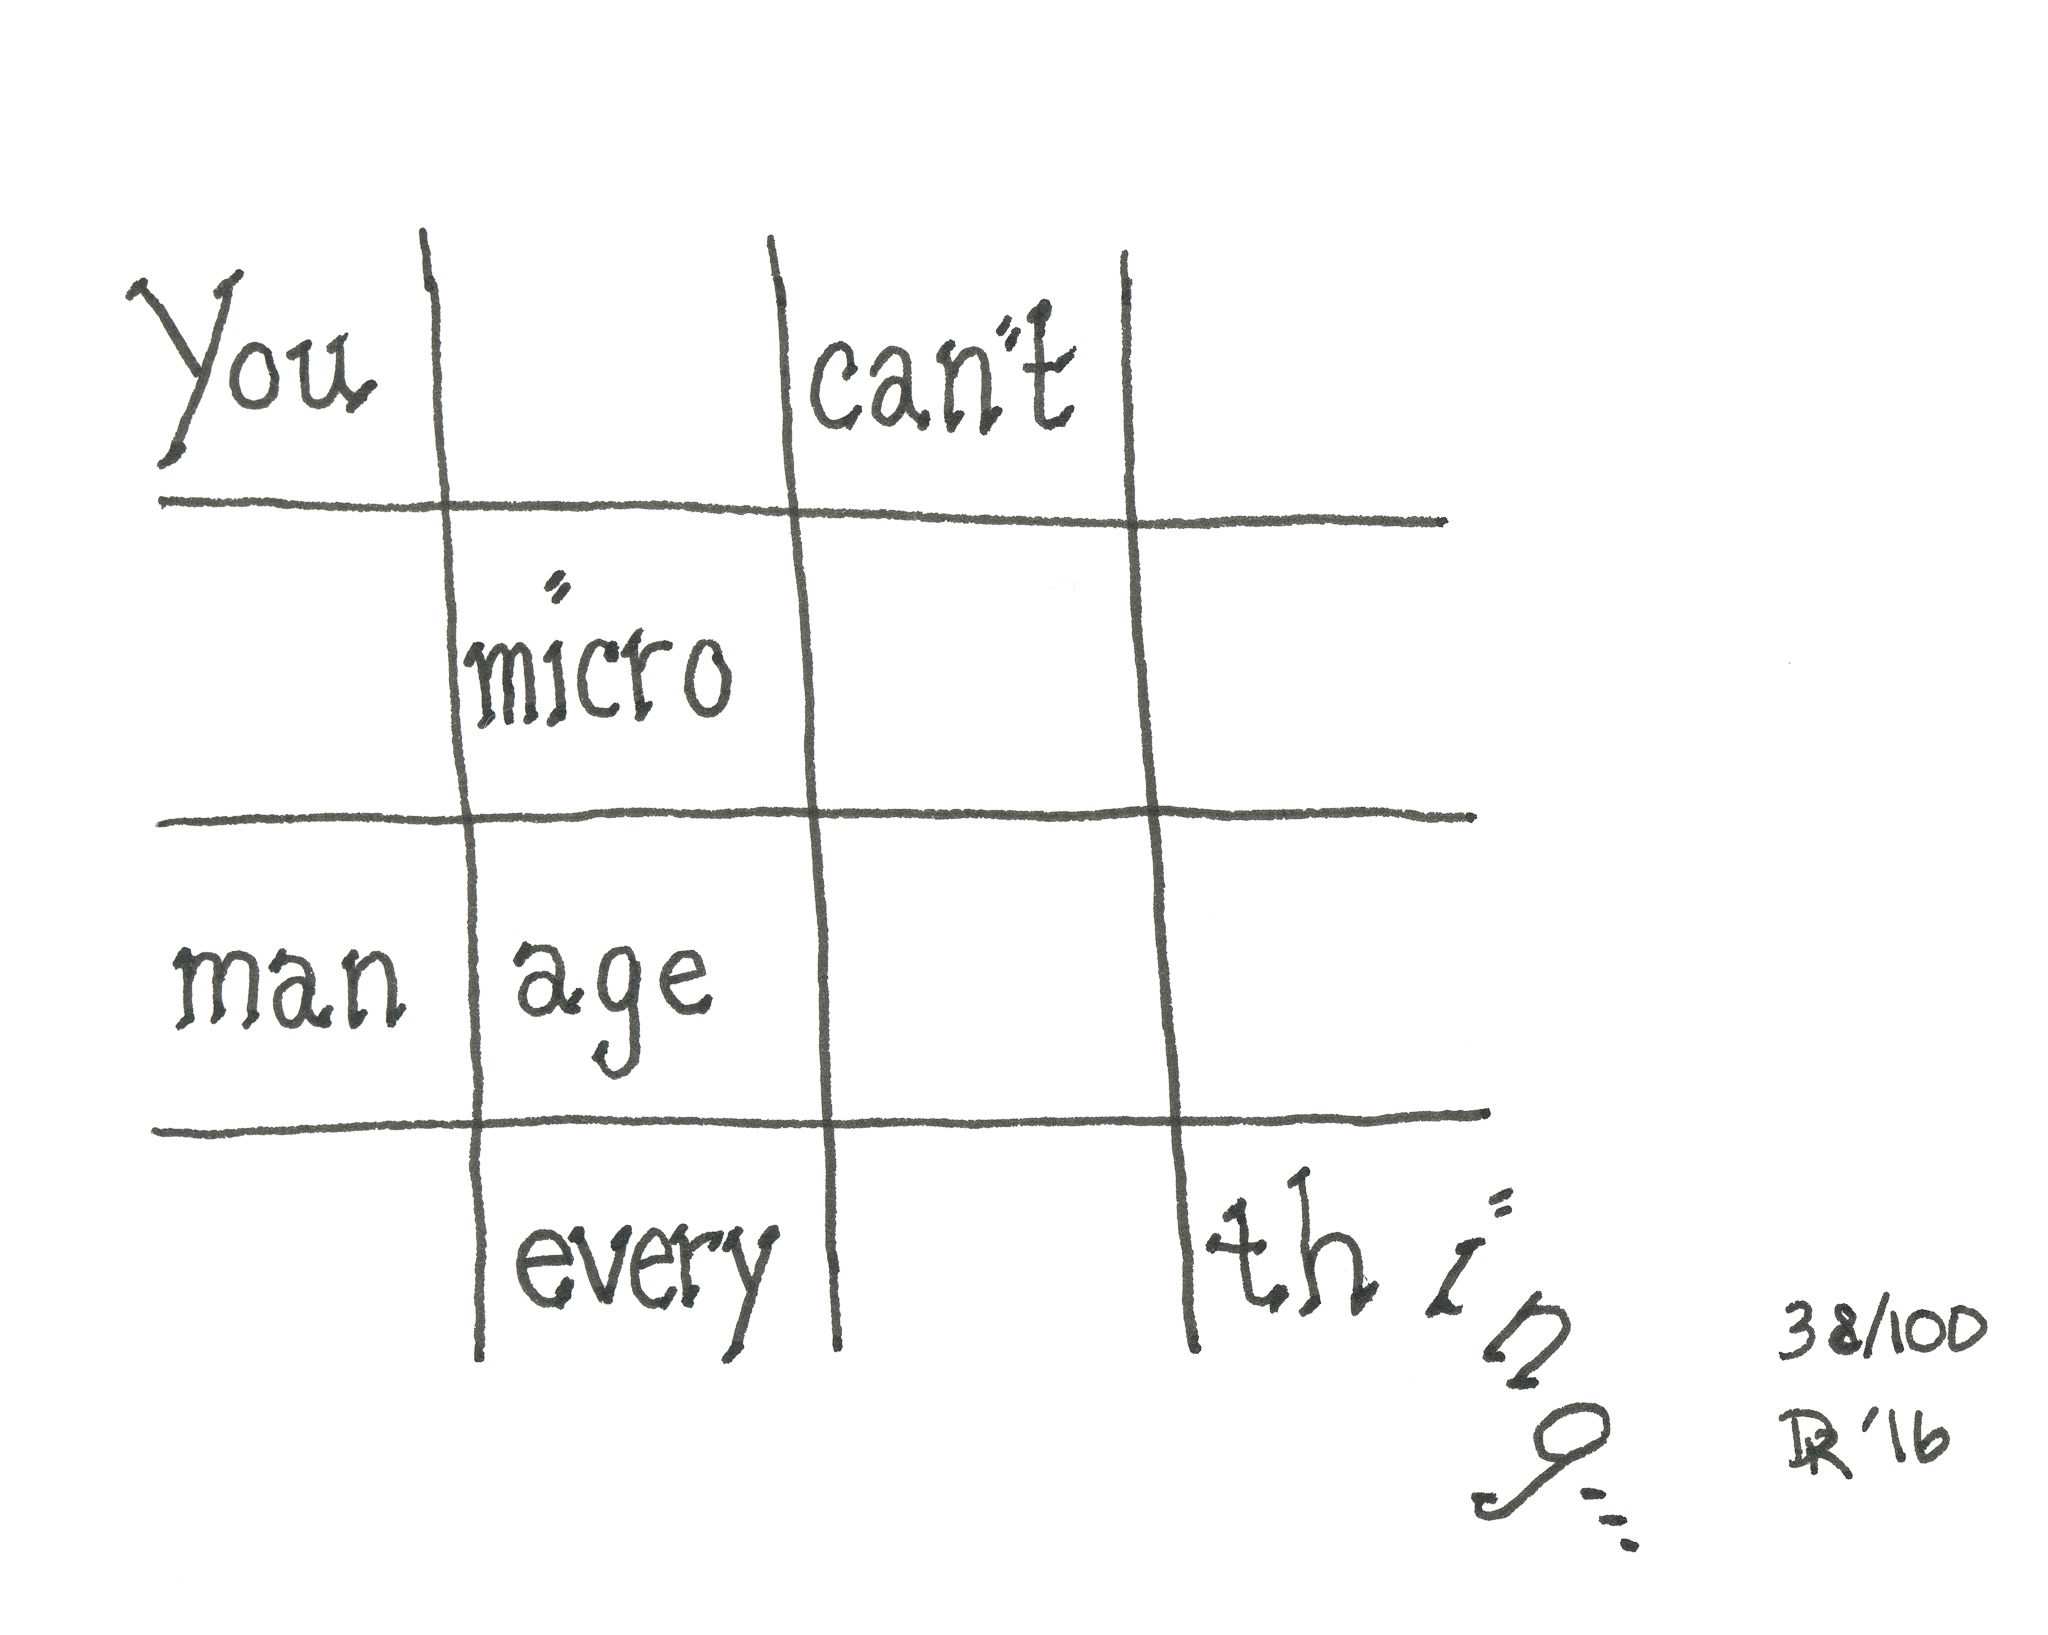 You can't
micro
man age
every thing...
38/100
DR '16